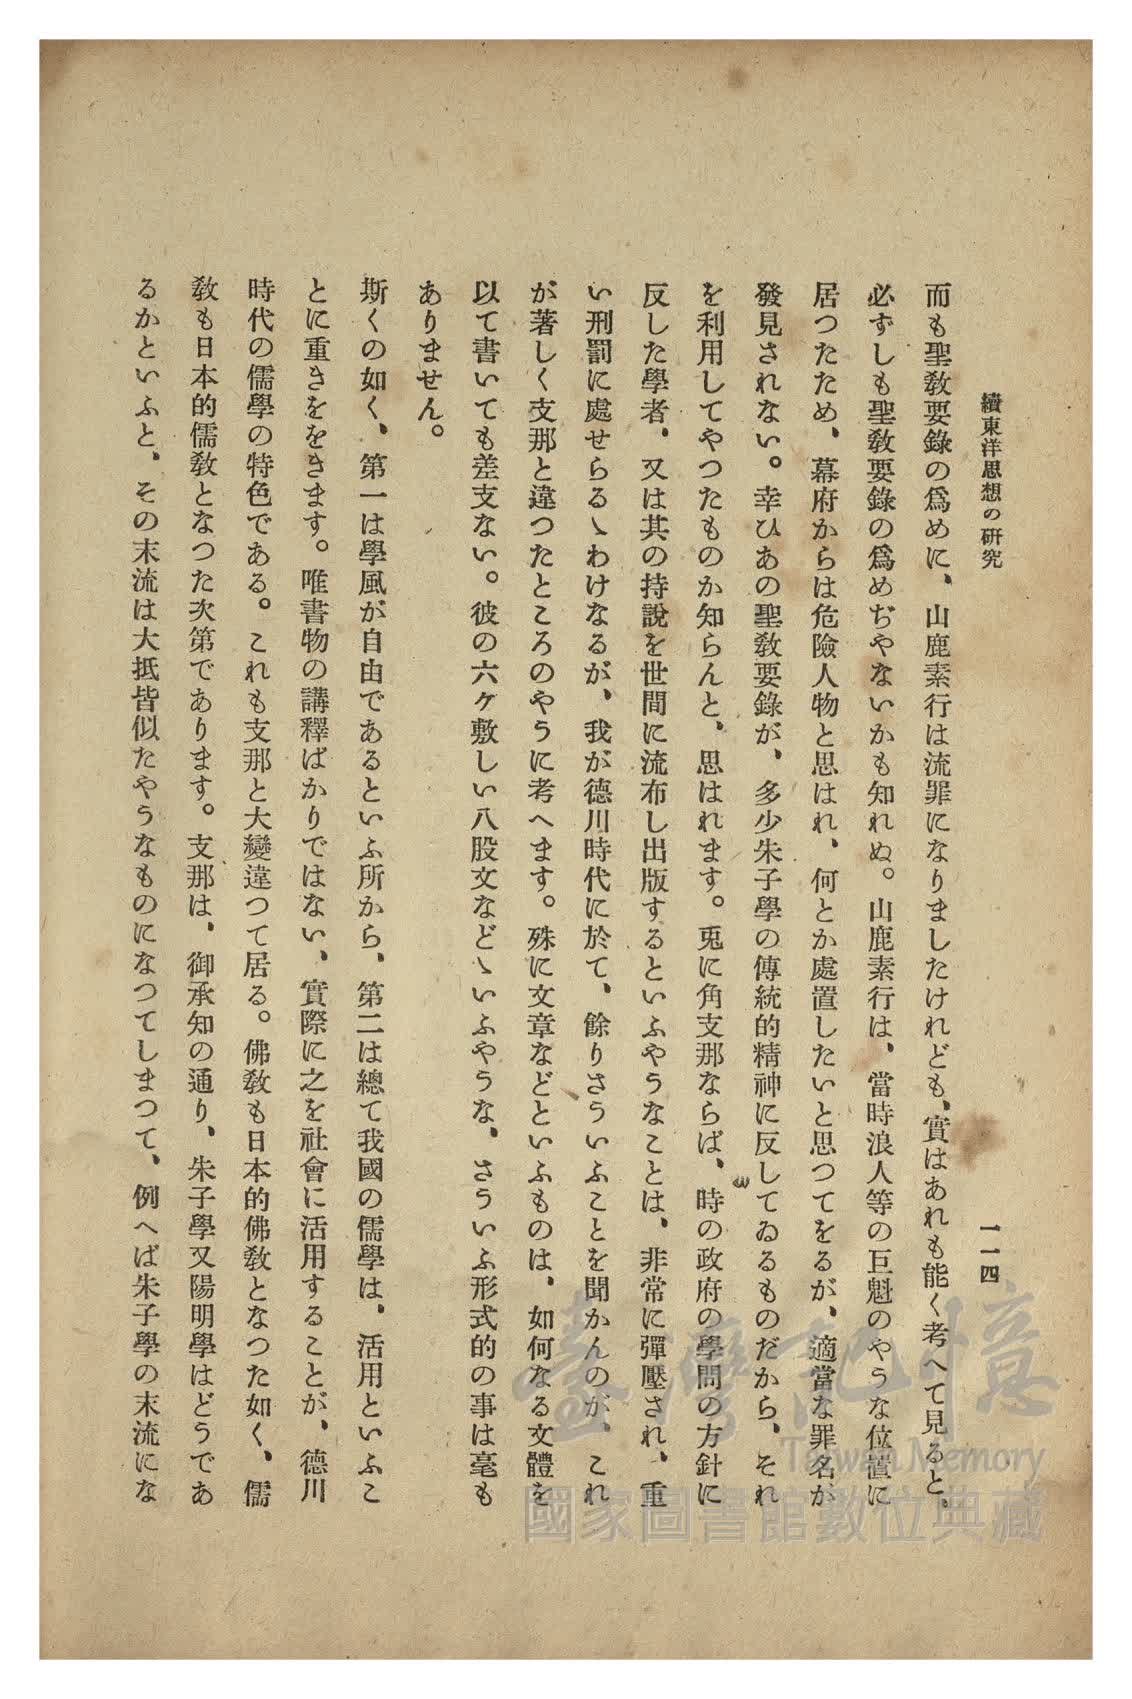 續東洋思想の硏究
一一四
而も聖敎要錄の爲めに、山鹿素行は流罪になりましたけれども、實はあれも能く考へて見ると、
必ずしも聖敎要錄の爲めぢやないかも知れぬ。山鹿素行は、當時浪人等の巨魁のやうな位置に
居つたため、幕府からは危險人物と思はれ、何とか處置したいと思つてをるが、適當な罪名が
發見されない。幸ひあの聖敎要錄が、多少朱子學の傳統的精神に反してゐるものだから、それ
を利用してやつたものか知らんと、思はれます。兎に角支那ならば、時の政府の學問の方針に
反した學者、又は其の持說を世間に流布し出版するといふやうなことは、非常に彈壓され、重
い刑罰に處せらるゝわけなるが、我が德川時代に於て、餘りさういふことを聞かんのが、これ
が著しく支那と違つたところのやうに考へます。殊に文章などといふものは、如何なる文體を
以て書いても差支ない。彼の六ケ敷しい八股文などゝいふやうな、さういふ形式的の事は毫も
ありません。
斯くの如く、第一は學風が自由であるといふ所から、第二は總て我國の儒學は、活用といふこ
とに重きををきます。唯書物の講釋ばかりではない、實際に之を社會に活用することが、德川
時代の儒學の特色である。これも支那と大變違つて居る。佛敎も日本的佛敎となつた如く、儒
敎も日本的儒敎となつた次第であります。支那は、御承知の通り、朱子學又陽明學はどうであ
るかといふと、その末流は大抵皆似たやうなものになつてしまつて、例へば朱子學の末流にな
臺灣記憶
Taiwan Memory
國家圖書館數位典藏